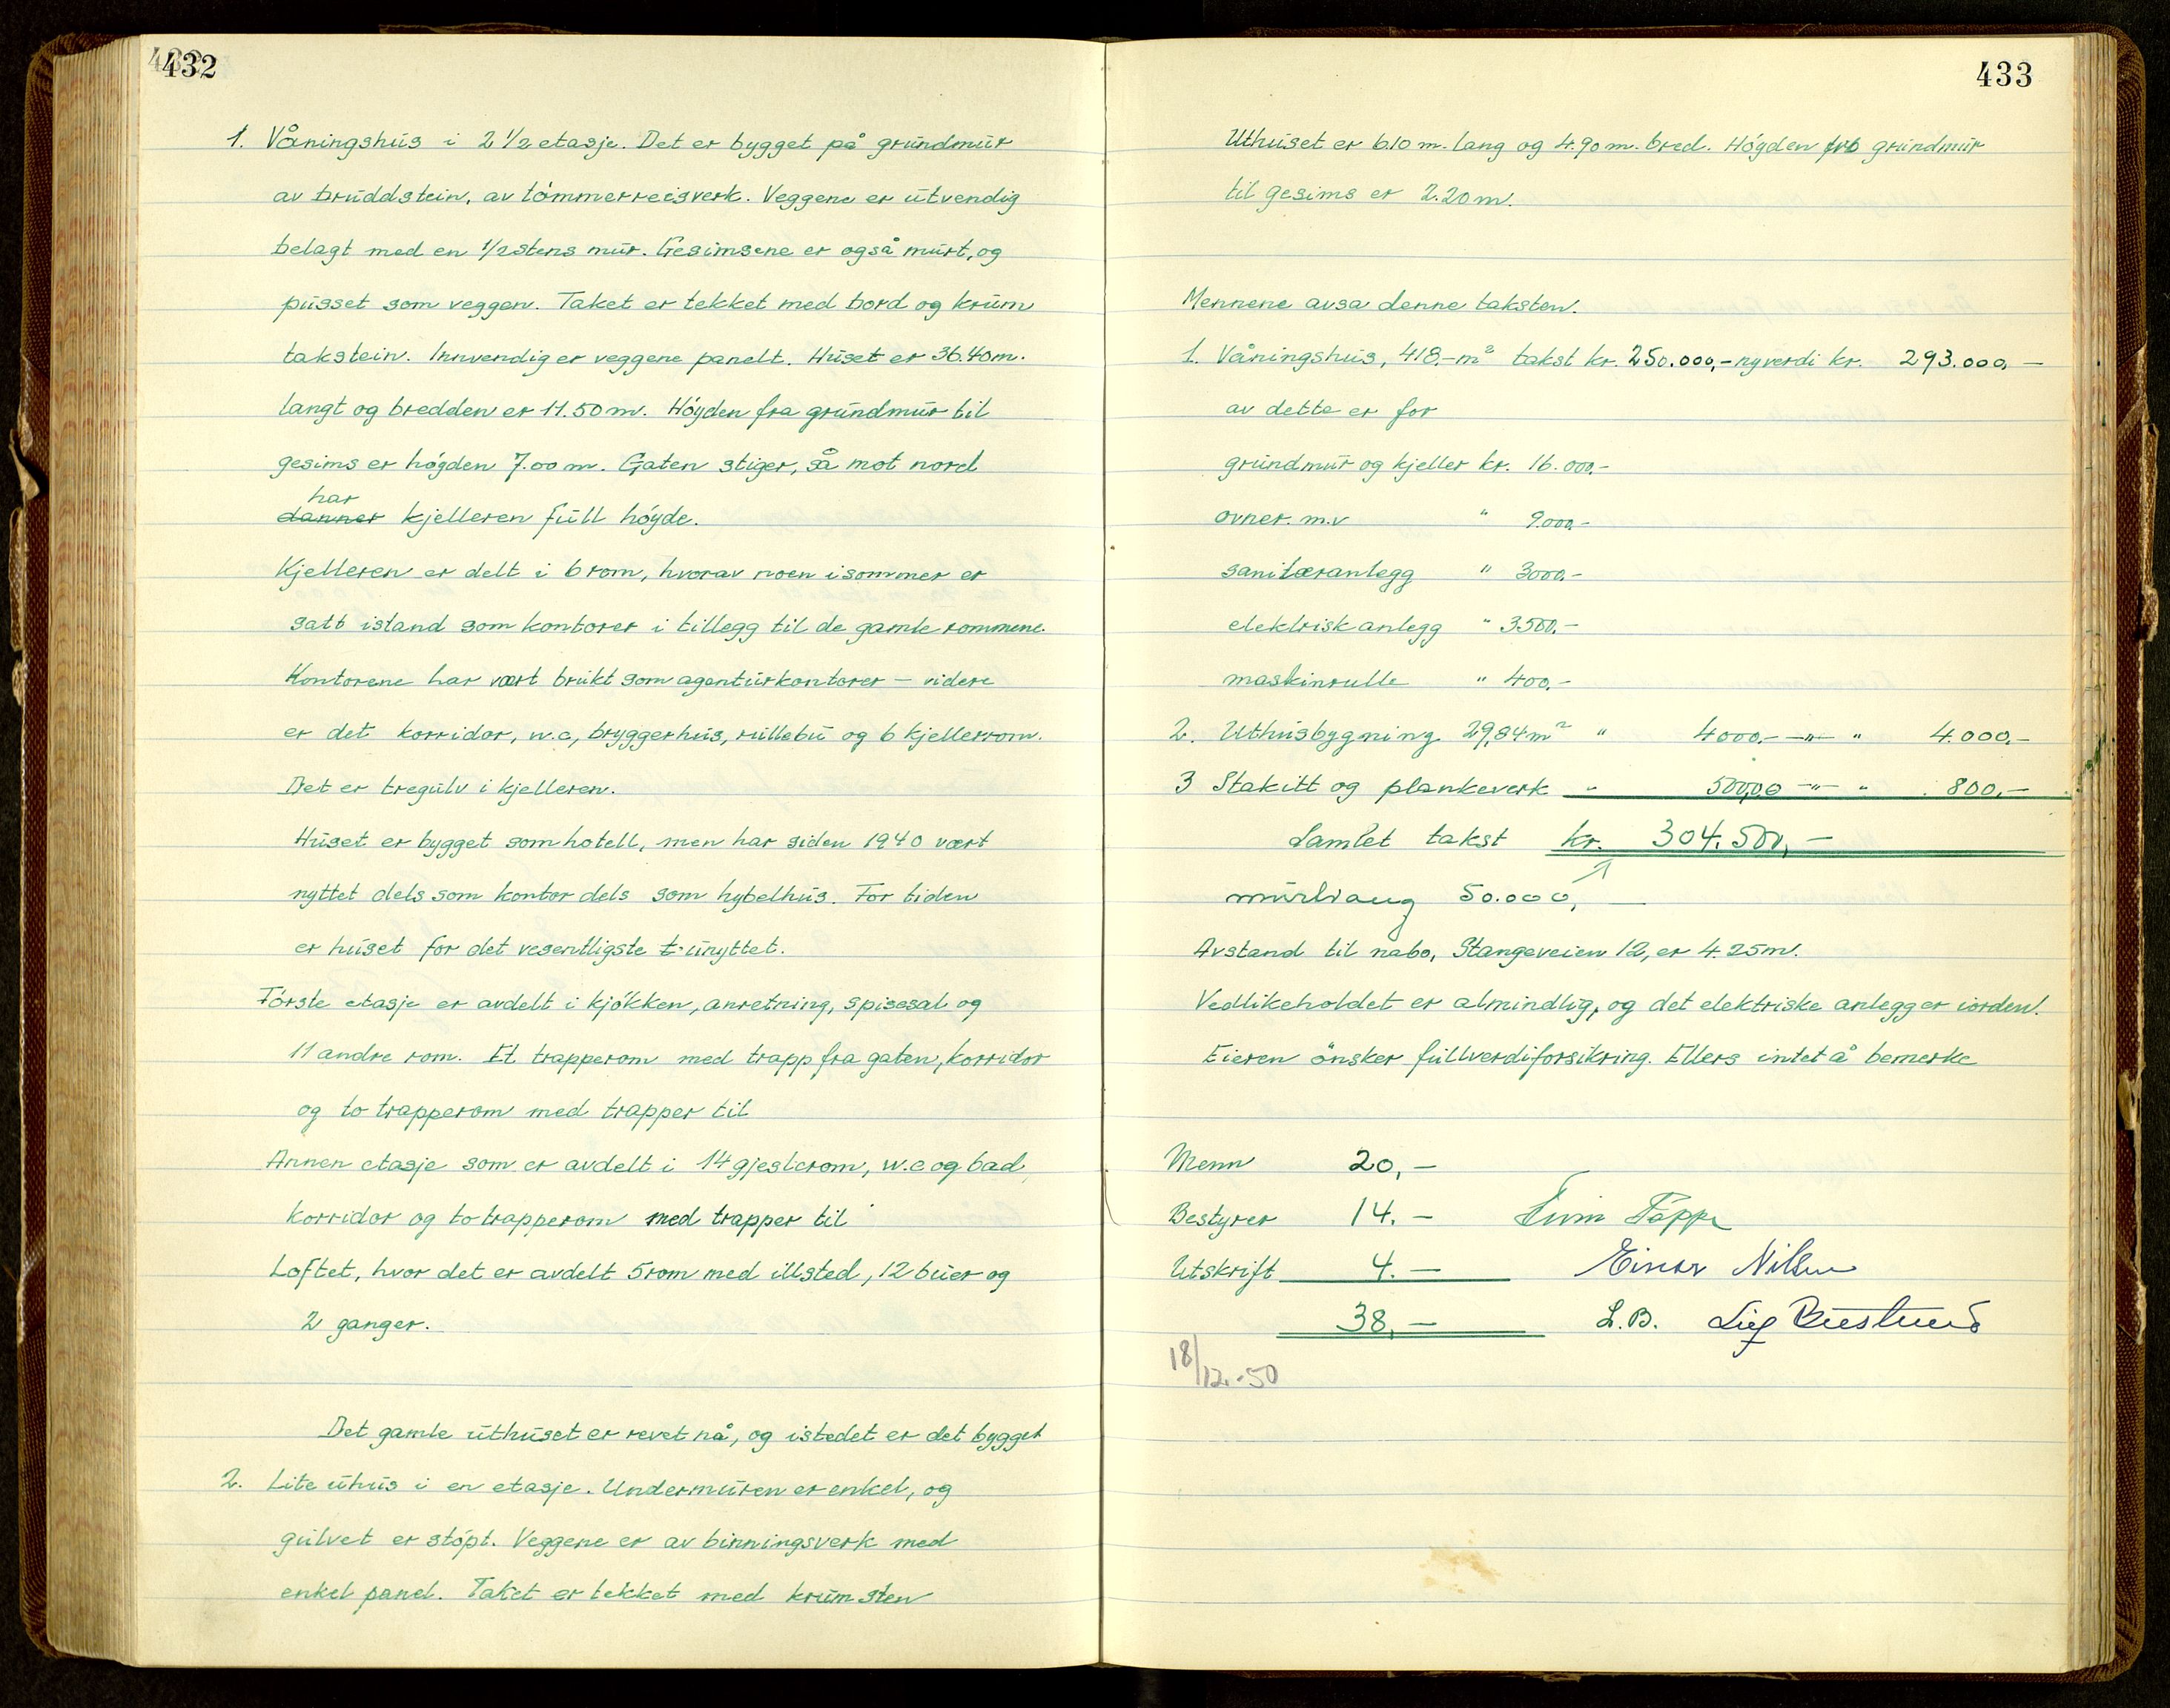 432
1. Våningshus i 2 1/2 etasje. Det er bygget på grundmur
av bruddstein, av tømmerreisverk. Veggene er utvendig
belagt med en 1/2 stens mur. Gesimsene er også murt, og
pusset som veggen. Taket er tekket med bord og krum
takstein. Innvendig er veggene panelt. Huset er 36.40 m.
langt og bredden er 11.50 m. Høyden fra grundmur til
gesims er høgden 7.00 m. Gaten stiger, så mot nord
har
danner kjelleren full høyde.
Kjelleren er delt i 6 rom, hvorav noen i sommer er
satt istand som kontorer i tillegg til de gamle rommene.
Kontorene har vært brukt som agenturkontorer – videre
er det korridor, w.c, bryggerhus, rullebu og 6 kjellerrom.
Det er tregulv i kjelleren.
Huset er bygget som hotell, men har siden 1940 vært
nyttet dels som kontor dels som hybelhus. For tiden
er huset for det vesentligste t. unyttet.
Første etasje er avdelt i kjøkken, anretning, spisesal og
11 andre rom. Et trapperom med trapp fra gaten, korridor
og to trapperom med trapper til
Annen etasje som er avdelt i 14 gjesterom, w.c og bad,
korridor og to trapperom med trapper til
Loftet, hvor det er avdelt 5 rom med illsted, 12 buer og
2 ganger.
Det gamle uthuset er revet nå, og istedet er det bygget
2. Lite uhus i en etasje. Undermuren er enkel, og
gulvet er støpt. Veggene er av binningsverk med
enkel panel. Taket er tekket med krum sten
433
Uthuset er 6.10 m. lang og 4.90 m. bred. Høgden fra grundmur
til gesims er 2.20 m.
Mennene avsa denne taksten.
1. Våningshus, 418,- m² takst kr. 250.000,- nyverdi kr. 293.000,—
av dette er for
grundmur og kjeller kr. 16.000,-
ovner. m.v " 9.000,-
sanitæranlegg " 3000,-
elektrisk anlegg " 3500,-
maskinrulle " 400,-
2. Uthusbygning 29,84 m² " 4000,- —"— " 4.000,-
3 Stakitt og plankeverk " 500,00 —"— " 800,—
Samlet takst kr. 304.500,—
50.000,—
Avstand til nabo, Stangeveien 12, er 4.25 m.
Vedlikeholdet er almindlig, og det elektriske anlegg er iorden.
Eieren önsker fullverdiforsikring. Ellers intet å bemerke
Menn 20,—
Bestyrer 14.—
Utskrift 4.— Einar Nilsen
38,— L.B.
18/12.-50